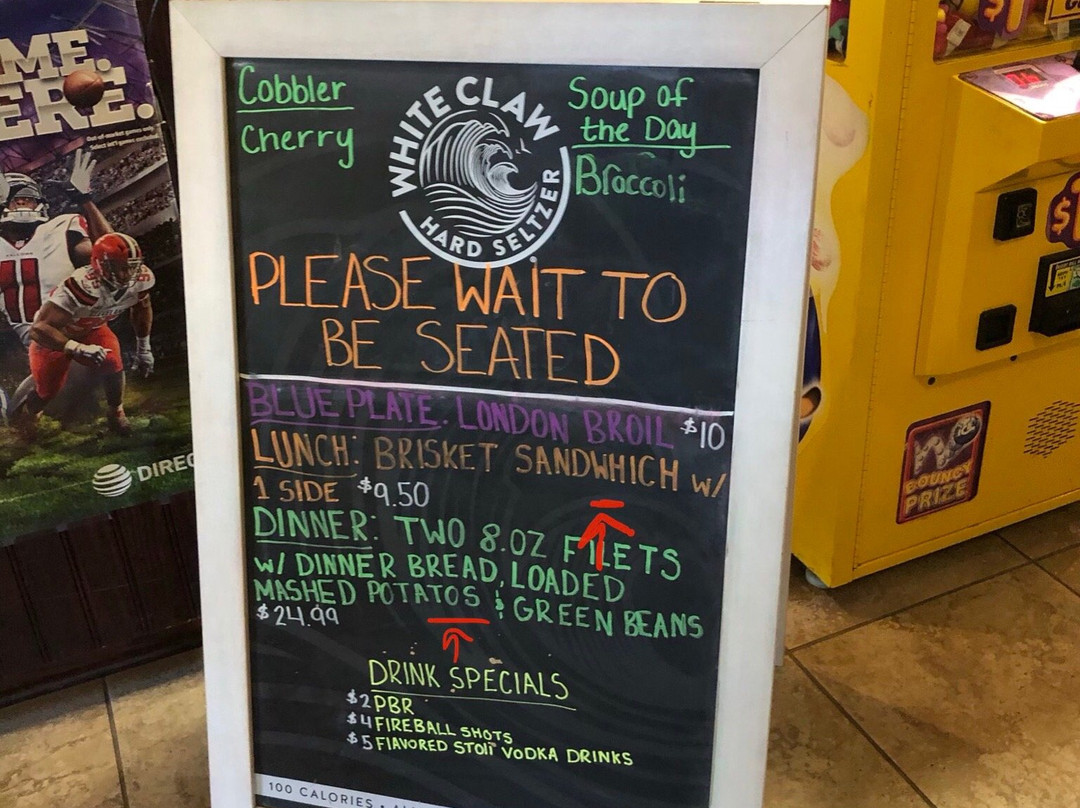 ME.
ERE.
Out-of-market games only.
Select int'l games
11
DIREC
Cobbler
Cherry
WHITE CLAW
HARD SELTZER
Soup of
the Day
Broccoli
PLEASE WAIT TO
BE SEATED
BLUE PLATE: LONDON BROIL $10
LUNCH: BRISKET SANDWHICH W/
1 SIDE $9.50
DINNER: TWO 8.OZ FILETS
W/ DINNER BREAD, LOADED
MASHED POTATOS & GREEN BEANS
$24.99
DRINK SPECIALS
$2 PBR
$4 FIREBALL SHOTS
$5 FLAVORED STOLI VODKA DRINKS
100 CALORIES •
$1
$1
BOUNCY
PRIZE